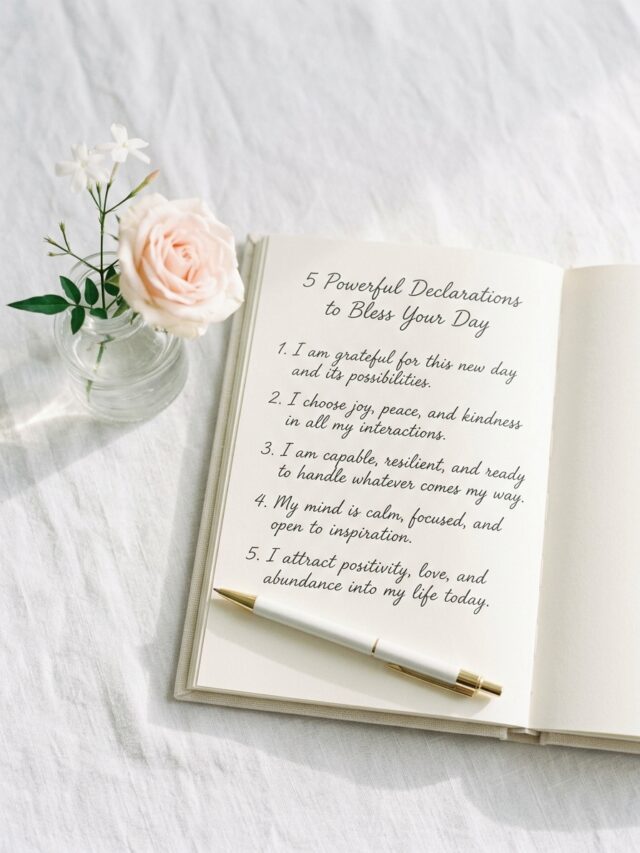 5 Powerful Declarations
to Bless Your Day
1. I am grateful for this new day
and its possibilities.
2. I choose joy, peace, and kindness
in all my interactions.
3. I am capable, resilient, and ready
to handle whatever comes my way.
4. My mind is calm, focused, and
open to inspiration.
5. I attract positivity, love, and
abundance into my life today.